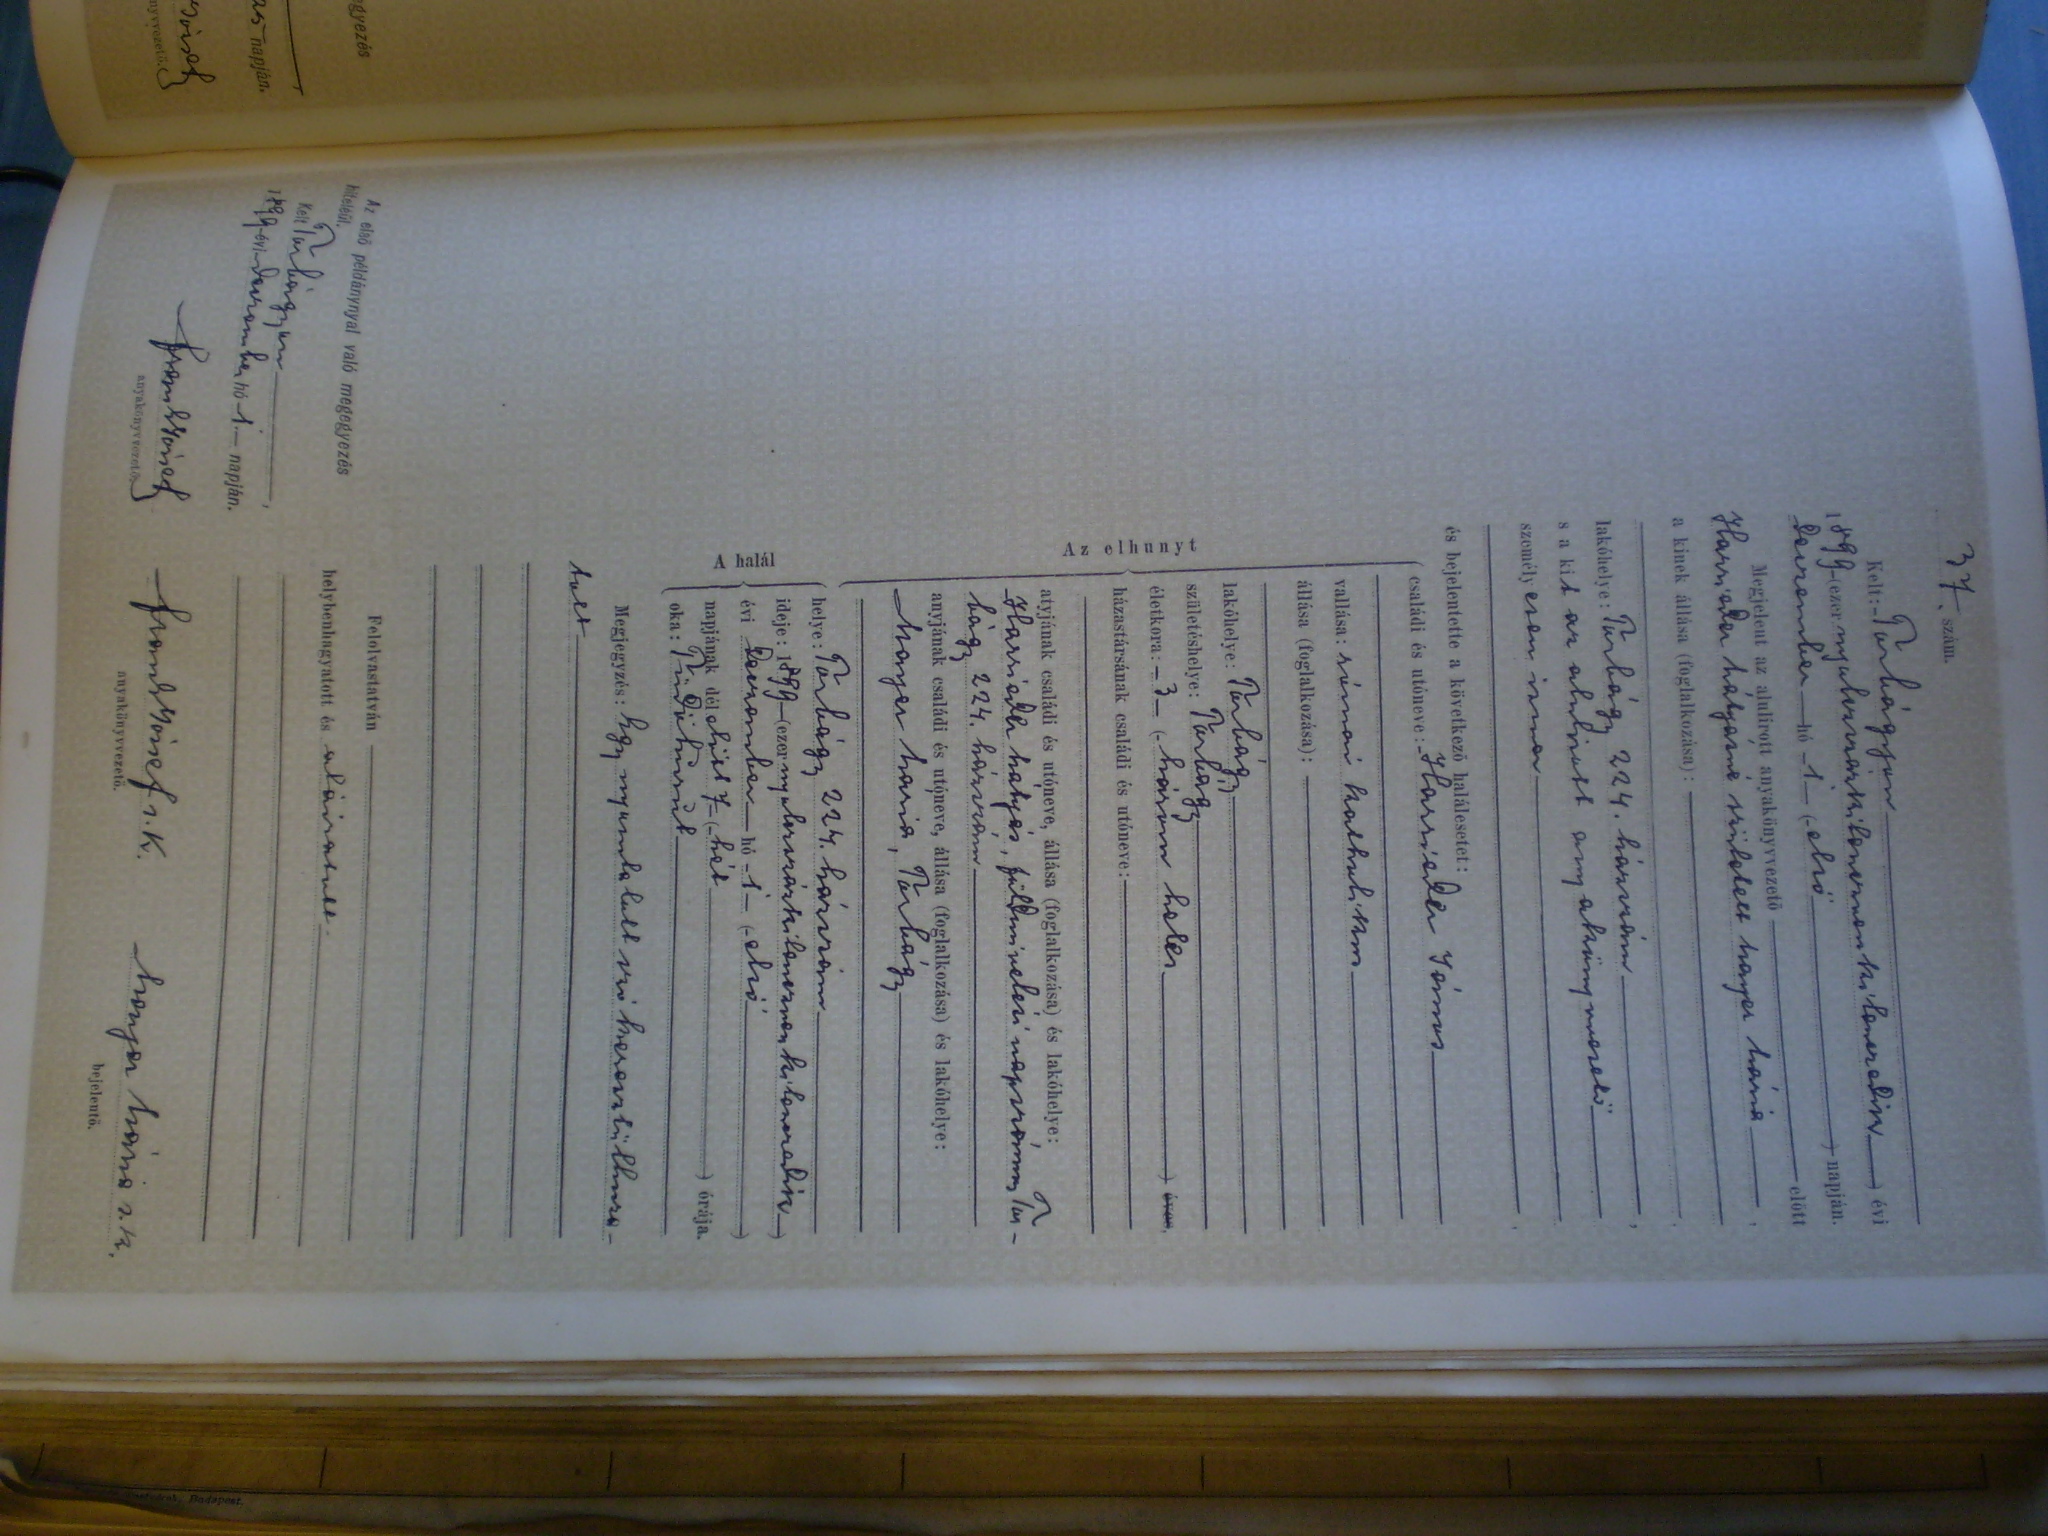 37. szám.
Kelt: Törbágyon
1899 (ezernyolcszázkilencvenkilencedik) évi
December hó 1 (-első) napján.
Megjelent az alulírott anyakönyvvezető előtt
Mátyásné született Mayer Mária,
a kinek állása (foglalkozása):
lakóhelye: Törbágy 224. házszám,
s a kit az alulirott anyakönyvvezető
személyesen ismer,
és bejelentette a következő halálesetet:
Az elhunyt
családi és utóneve: János
vallása: római katholikus
állása (foglalkozása):
lakóhelye: Törbágy
születéshelye: Törbágy
életkora: 3 (-három hetes) éves,
házastársának családi és utóneve:
atyjának családi és utóneve, állása (foglalkozása) és lakóhelye:
Mátyás, földmivelési napszámos, Tör-
bágy 224. házszám
anyjának családi és utóneve, állása (foglalkozása) és lakóhelye:
Mayer Mária, Törbágy
A halál
helye: Törbágy 224. házszám
ideje: 1899 (ezernyolcszázkilencvenkilencedik)
évi December hó 1 (-első)
napjának délelőtt 7 (-hét) órája
oka:
Megjegyzés: Egy nyomtatott szó keresztülhuza-
tott
Felolvastatván
helybenhagyatott és aláiratott.
József s. k.
anyakönyvvezető.
Mayer Mária s. k.
bejelentő.
Az első példánynyal való megegyezés
hiteleül.
Kelt Törbágyon,
1899 évi December hó 1 napján.
József
anyakönyvvezető.
egyezés
napján.
Budapest.